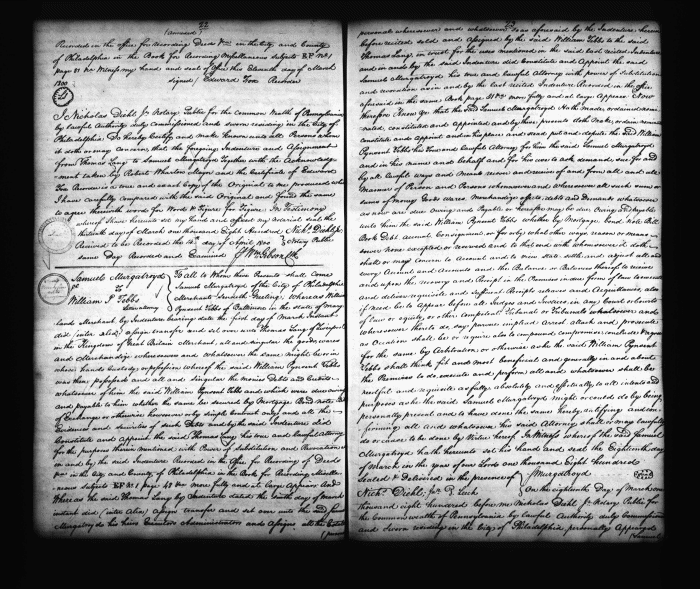 22
(annexed)
Recorded in the office for recording Deeds &c in the City and County
of Philadelphia in the Book for recording Miscellaneous Subjects EF No 1
page 51 &c Witness my hand and seal of Office this Eleventh day of March
1800 signed Edward Fox Recorder
I Nicholas Diehl Jr Notary Public for the Common Wealth of Pennsylvania
by lawful Authority duly Commissioned and sworn residing in the City of
Philadelphia Do hereby Certify and make Known unto all Persons whom
it doth or may concern, that the foregoing Indenture and Assignment
from Thomas Lang to Samuel Murgatroyd Together with the Acknowledge-
ment taken by Robert Wharton Mayor and the Certificate of Edward
Fox Recorder is a true and exact Copy of the Original to me produced which
I have carefully compared with the said Original and found the same
to agree therewith word for Word & figure for figure. In Testimony
whereof I have hereunto set my hand and affixed my notarial seal the
day of March one thousand Eight Hundred Nichs Diehl Jr
Received to be Recorded the 12th day of April 1800 Notary Public
same Day Recorded and Examined Wm Gibson Clk
Samuel Murgatroyd
to
William P Tebbs
To all to Whom these Presents shall come
Samuel Murgatroyd of the City of Philadelphia
Merchant sendeth Greeting Whereas William
Pynsent Tebbs of Baltimore in the state of Mary-
land Merchant by Indenture bearing date the first day of March Instant
did (inter alia) assign transfer and set over unto Thomas Lang of Liverpool
in the Kingdom of Great Britain Merchant, all and singular the goods wares
and Merchandize wheresoever and whatsoever the same might be or in
whose hands Custody or possession whereof the said William Pynsent Tebbs
was then possessed and all and singular the monies Debts and Credits
whatsoever of him the said William Pynsent Tebbs and which were due owing
and payable to him whether the same be secured by Mortgage Bond note Bill
of Exchange or otherwise howsoever or by simple Contract only and all the
Evidences and securities of such Debts and by the said Indenture did
Constitute and appoint the said Thomas Lang his true and lawful attorney
for the purposes therein mentioned with Power of Substitution and Revocation as
in and by the said Indenture Recorded in the Office for Recording of Deeds
&c in the City and County of Philadelphia in the Book for Recording Miscella-
neous subjects EF No 1 page 48 &c more fully and at large appears And
Whereas the said Thomas Lang by Indenture dated the tenth day of March
instant did (inter Alia) assign transfer and set over unto the said Samuel
Murgatroyd his heirs Executors Administrators and Assigns all the Estate
23
personal whensoever and whatsoever as aforesaid by the Indenture herein
before recited sold and assigned by the said William Tebbs to the said
Thomas Lang in trust for the uses mentioned in the said last recited Indenture
and in and by the same did Constitute and Appoint the said
Samuel Murgatroyd his true and Lawful Attorney with power of Substitution
and revocation as in and by the last recited Indenture Recorded in the office
aforesaid in the same Book page 51 &c more fully and at large Appears Now
therefore Know Ye that the said Samuel Murgatroyd Hath made ordained nomi-
nated, constituted and appointed and by these presents doth make, ordain, nominate
constitute and appoint and in his place and stead put and depute the said William
Pynsent Tebbs his true and lawful Attorney for him the said Samuel Murgatroyd
and in his name and behalf and for his use to ask demand, sue for and
by all lawful ways and means recover and receive of and from all and all
Manner of Person and Persons whomsoever and wheresoever all such sum or
sums of money Goods wares Merchandize effects, debts and Demands whatsoever
as now are due owing and Payable or hereafter may be due owing and payable
unto him the said William Pynsent Tebbs whether by Mortgage, bond Note Bill
Book Debt account Consignment, or for or by what other ways reasons or means
soever none excepted or reserved and to that end with whomsoever it doth
shall or may concern to account and to view state settle and adjust all and
every Account and Accounts and the Ballance or Ballances thereof to receive
and upon the recovery and Receipt in the Premises in due form of Law to execute
and deliver requisite and sufficient Receipts releases and Acquittances, also
if need be to Appear before all Judges and Justices in any Court or Courts
of law or equity or other Competent Tribunal or Tribunals whatsoever and
wheresoever there to do, say, pursue implead arrest attach and prosecute
as Occasion shall be or require also to compound compromise conclude & agree
for the same by Arbitration or otherwise as he the said William Pynsent
Tebbs shall think fit and most beneficial and generally in and about
the Premises to do execute and perform all and whatsoever shall be
needful and requisite as fully absolutely and effectually to all intents and
purposes as he the said Samuel Murgatroyd might or could do by being
personally present and to have done the same hereby ratifying and con-
firming all and whatsoever his said Attorney shall or may lawfully
do or cause to be done by Virtue hereof In Witness whereof the said Samuel
Murgatroyd hath hereunto set his hand and seal the Eighteenth day
of March in the year of our Lord one thousand Eight hundred
Sealed & Delivered in the presence of S Murgatroyd
Nichs. Diehl, Jr. On the eighteenth Day of March one
thousand eight hundred before me Nicholas Diehl Jr Notary Public for
the Commonwealth of Pennsylvania by lawful Authority duly Commissioned
and Sworn residing in the City of Philadelphia personally Appeared
(Samuel